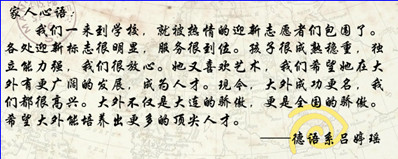 家人心语:
我们一来到学校，就被热情的迎新志愿者们包围了。
各处迎新标志很明显，服务很到位。孩子很成熟稳重，独
立能力强，我们很放心。她又喜欢艺术，我们希望她在大
外有更广阔的发展，成为人才。现今，大外成功更名，我
们都很高兴。大外不仅是大连的骄傲，更是全国的骄傲。
希望大外能培养出更多的顶尖人才。
——德语系吕婷瑶